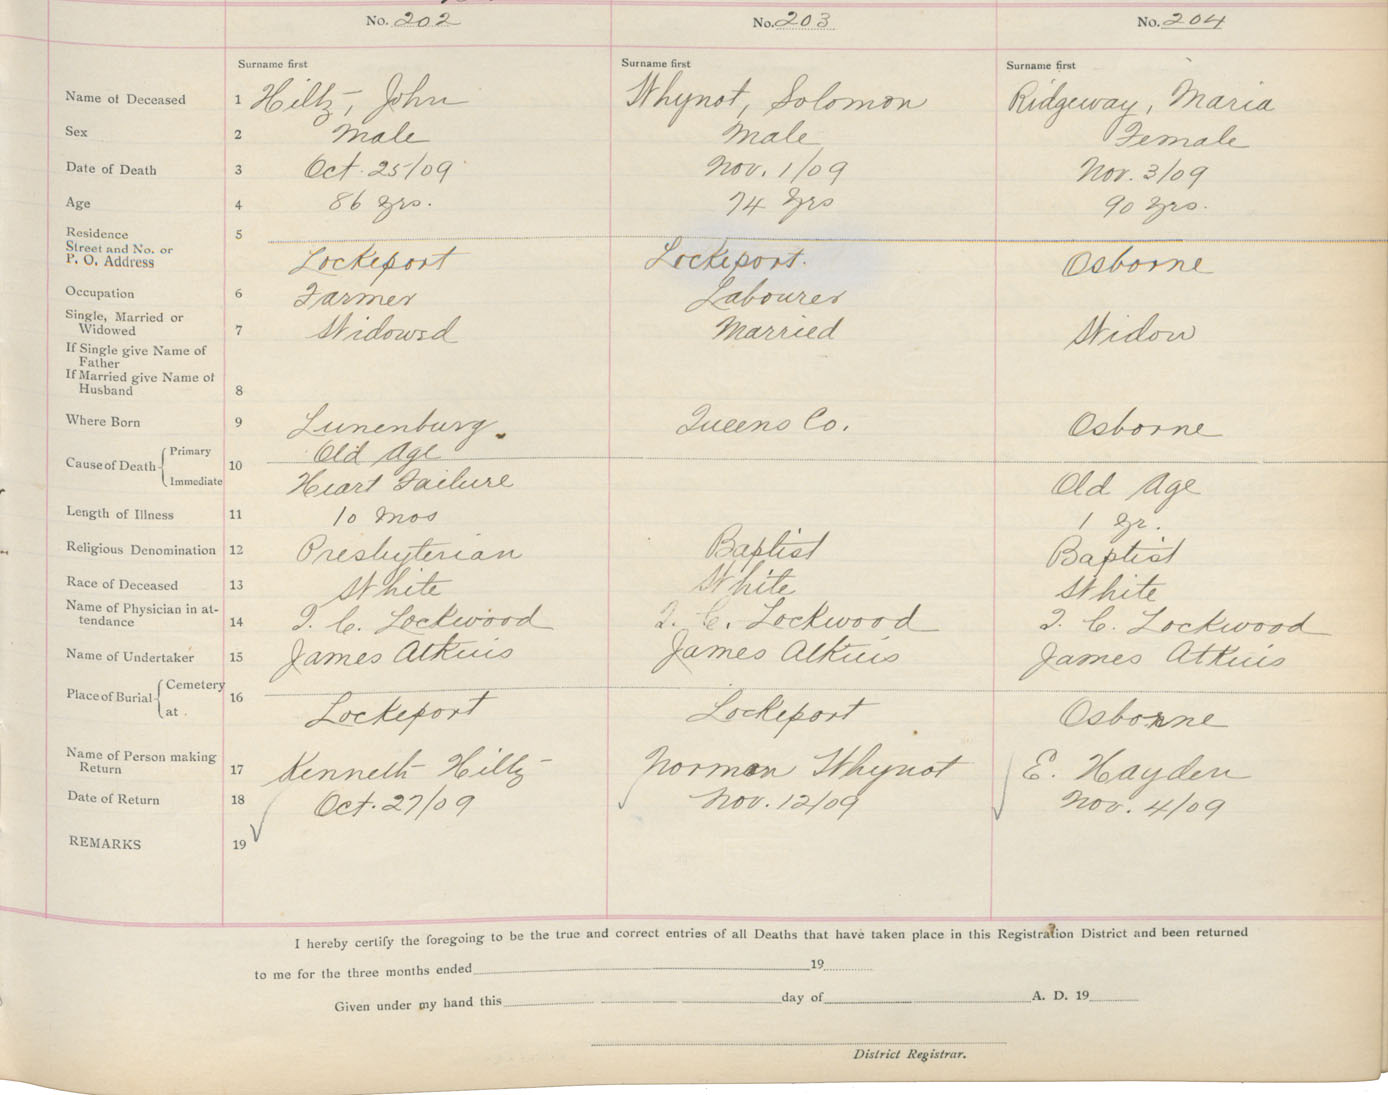 No. 202 No. 203 No. 204
Surname first Surname first Surname first
Name of Deceased 1 Hiltz, John Whynot, Solomon Ridgeway, Maria
Sex 2 Male Male Female
Date of Death 3 Oct. 25/09 Nov. 1/09 Nov. 3/09
Age 4 86 yrs. 74 yrs 90 yrs.
Residence 5
Street and No. or
P. O. Address Lockeport Lockeport. Osborne
Occupation 6 Farmer Labourer
Single, Married or
Widowed 7 Widowed Married Widow
If Single give Name of
Father
If Married give Name of
Husband 8
Where Born 9 Lunenburg Queens Co. Osborne
Cause of Death Primary 10 Old Age
Immediate Heart Failure Old Age
Length of Illness 11 10 mos 1 yr.
Religious Denomination 12 Presbyterian Baptist Baptist
Race of Deceased 13 White White White
Name of Physician in at-
tendance 14 T. C. Lockwood T. C. Lockwood T. C. Lockwood
Name of Undertaker 15 James Atkins James Atkins James Atkins
Place of Burial Cemetery 16
at Lockeport Lockeport Osborne
Name of Person making
Return 17 Kenneth Hiltz Norman Whynot E. Hayden
Date of Return 18 Oct. 27/09 Nov. 12/09 Nov. 4/09
REMARKS 19
I hereby certify the foregoing to be the true and correct entries of all Deaths that have taken place in this Registration District and been returned
to me for the three months ended 19
Given under my hand this day of A. D. 19
District Registrar.